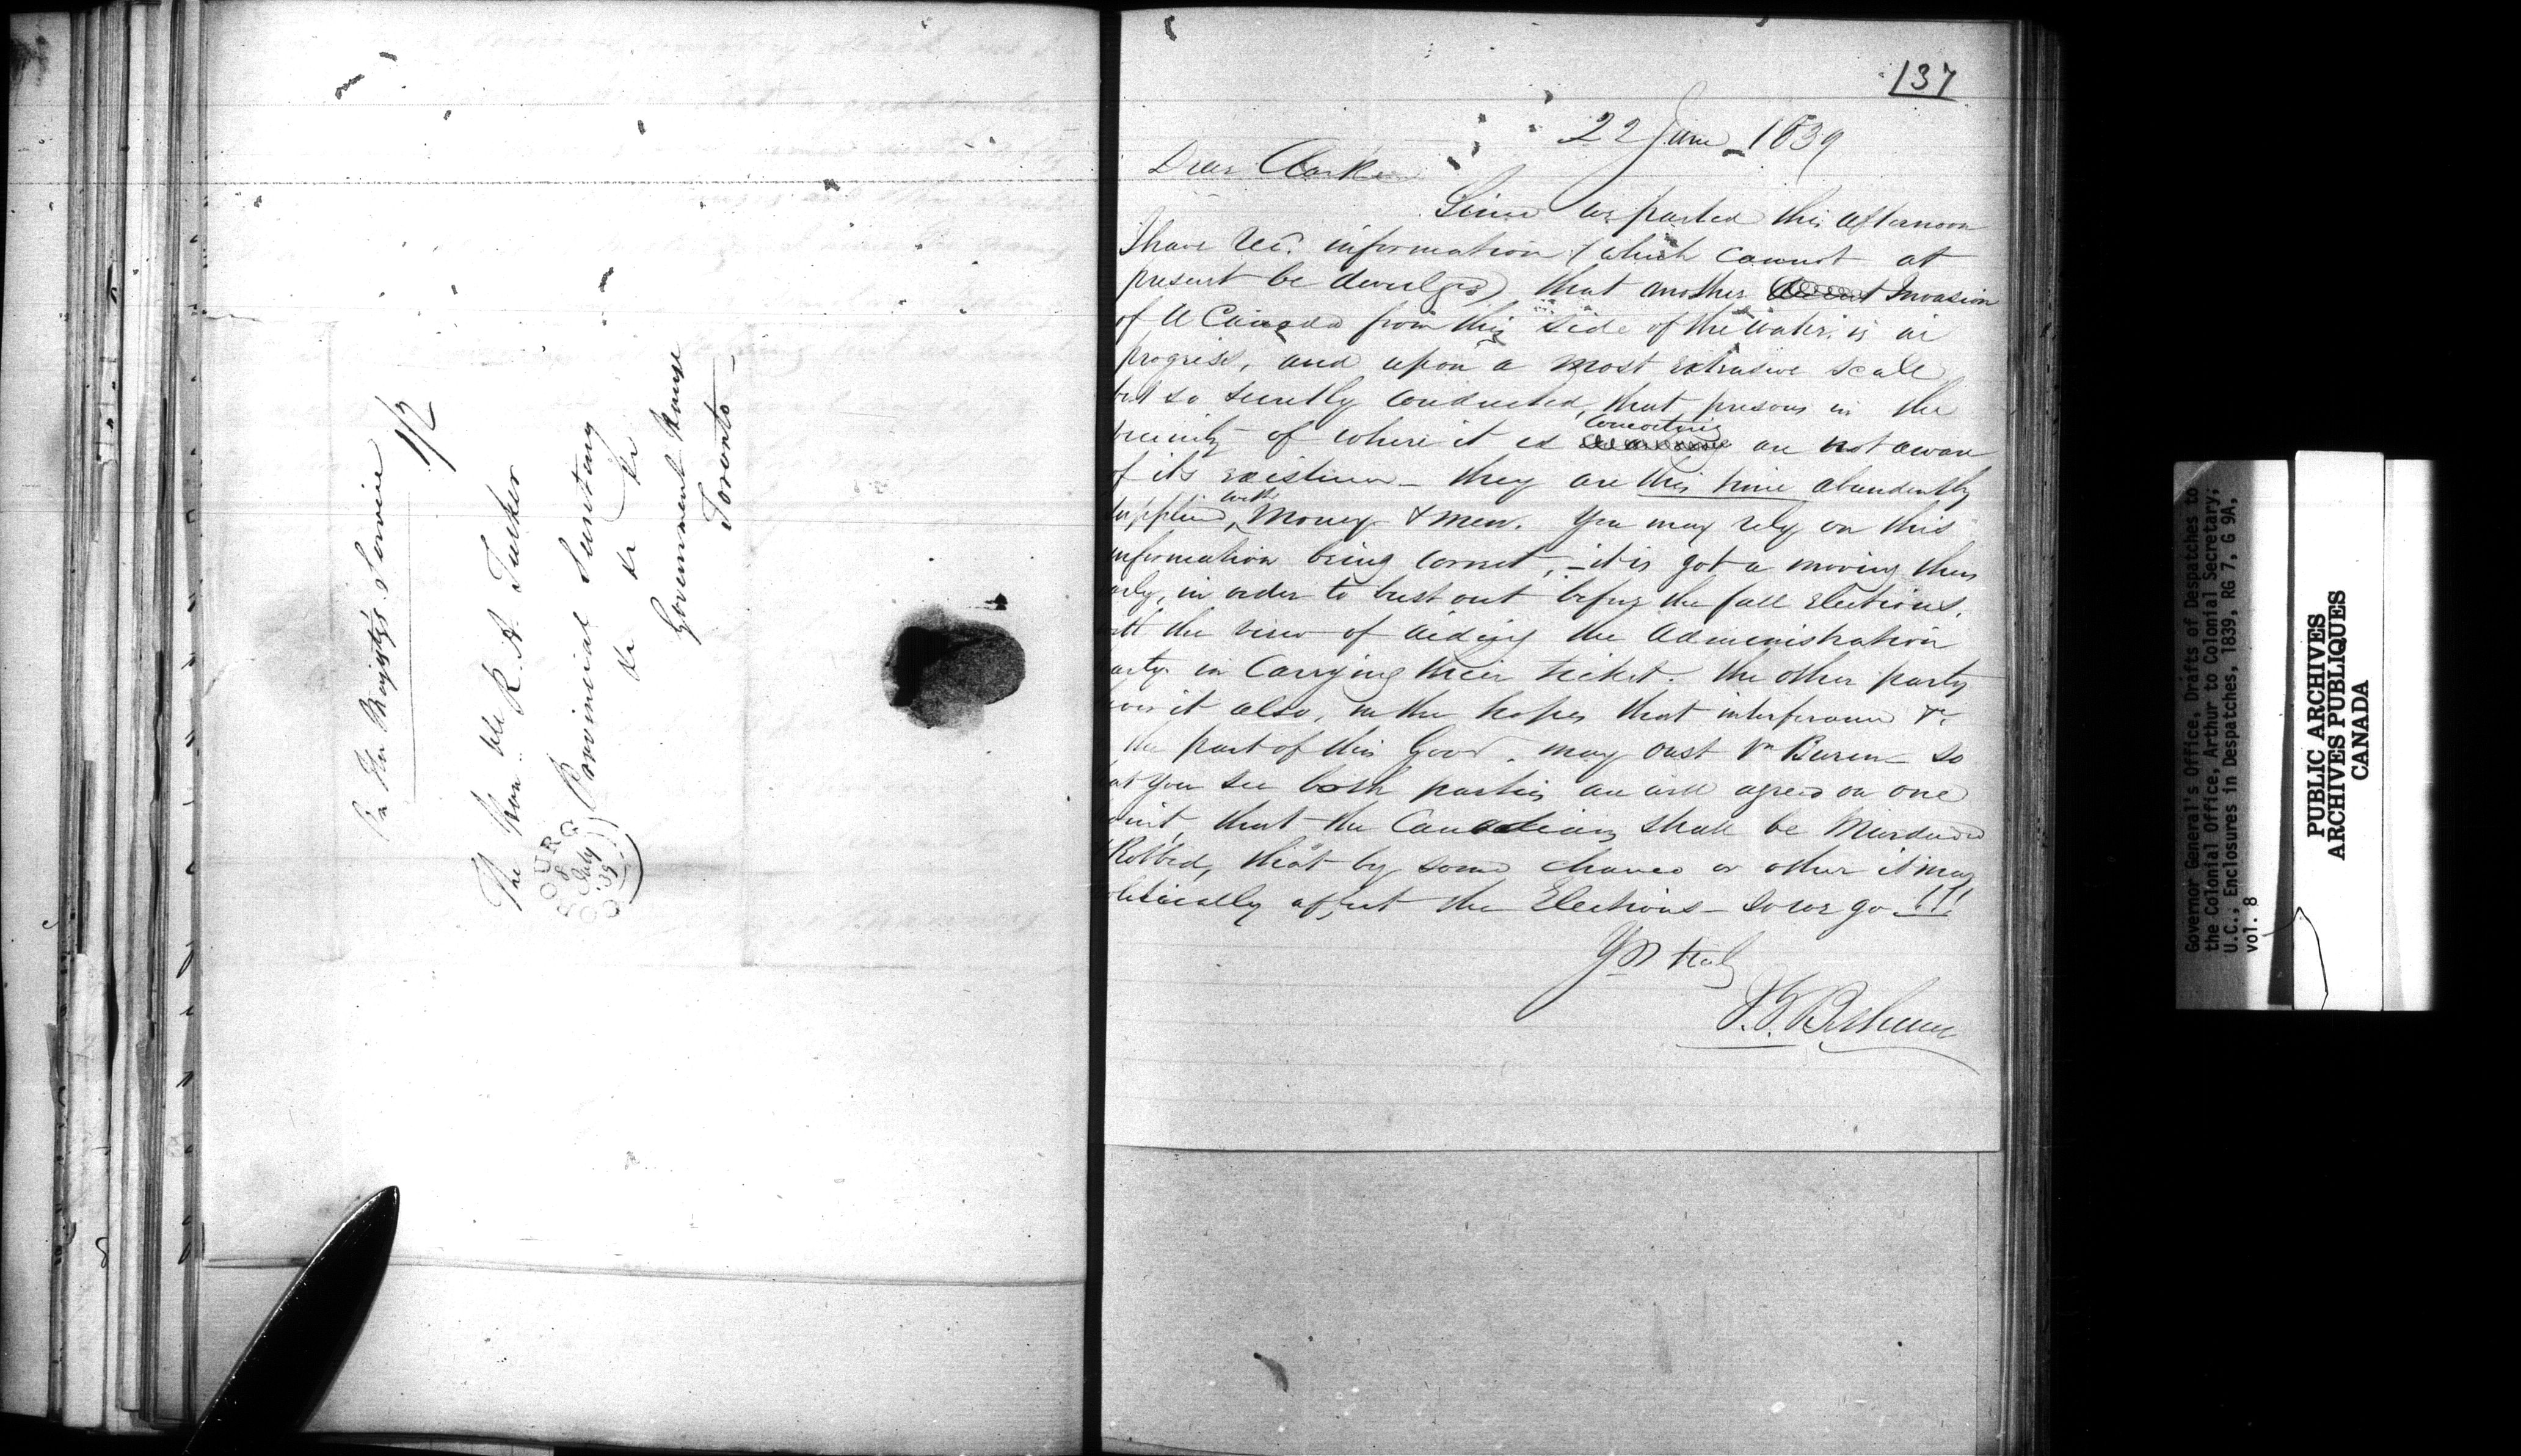 On Her Majesty's Service
1/2
The Hon.ble R. A. Tucker
Provincial Secretary
&c &c &c
Government House
Toronto
COBOURG
8
July
'39
137
22 June 1839
Dear Clarke
Since we parted this afternoon
I have rec. information (which cannot at
present be devulged) that another Invasion
of U Canada from this side of the water is in
progress, and upon a most extensive scale
but so secretly conducted, that persons in the
vicinity of where it is concocting are not aware
of its existence - they are this time abundently
supplied, with Money & men. You may rely on this
information being correct, - it is got a moving thus
early, in order to bust out before the fall elections,
with the view of aiding the administration
party in Carrying their ticket. the other party
it also, in the hopes that interference &c
the part of this Gov. may oust Vn Buren - so
that you see both parties are agreed on one
point, that the Canadians shall be Murdered
Robbed, that by some chance or other it may
politically affect the Elections - So we go !!!
Yrs truly
Governor General's Office, Drafts of Despatches to
the Colonial Office, Arthur to Colonial Secretary;
U.C., Enclosures in Despatches, 1839, RG 7, G 9A,
vol. 8
PUBLIC ARCHIVES
ARCHIVES PUBLIQUES
CANADA